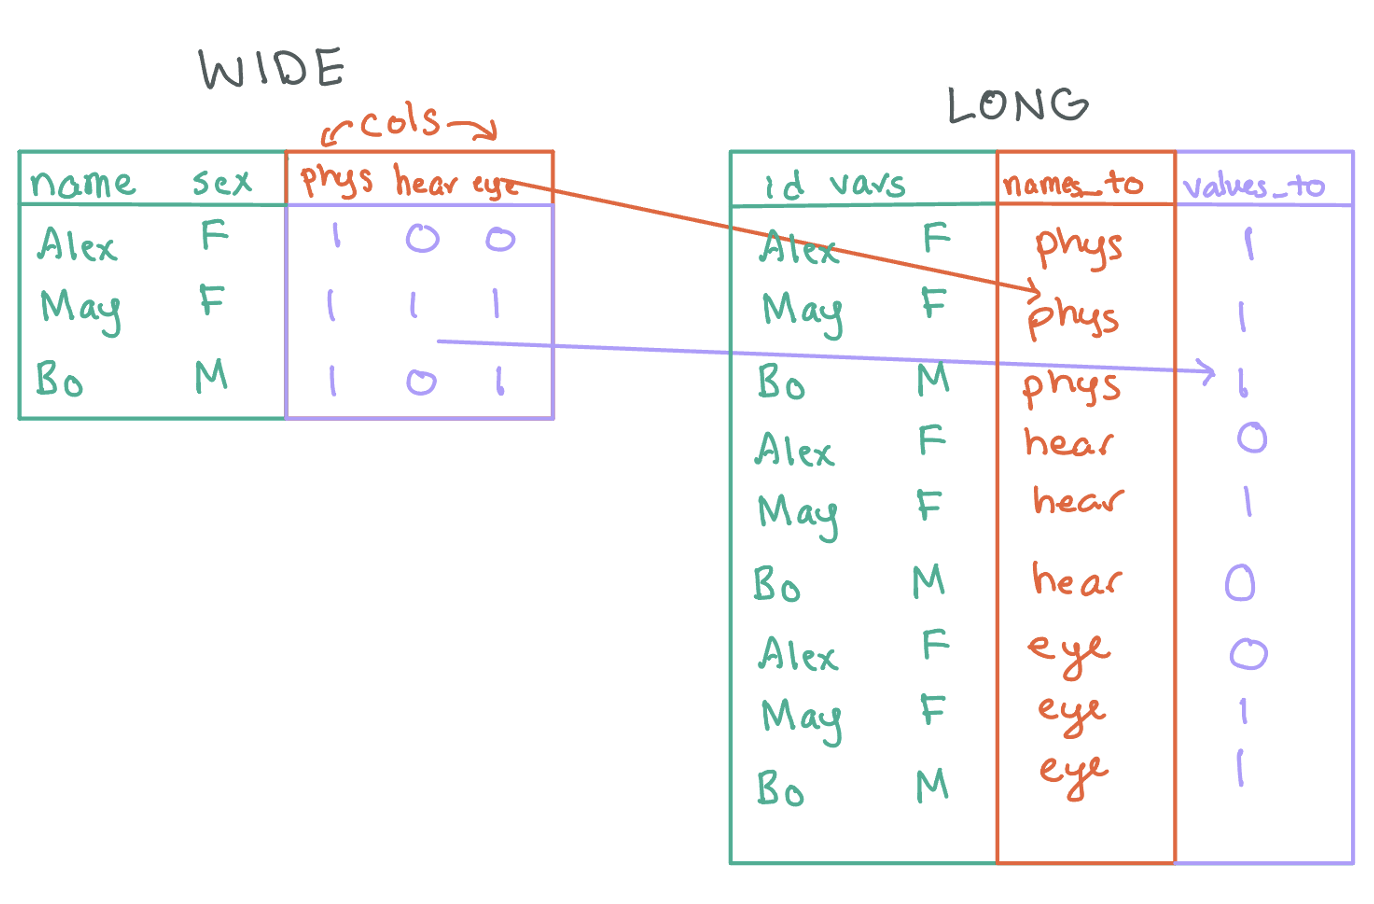 WIDE
cols
name sex phys hear eye
Alex F 1 0 0
May F 1 1 1
Bo M 1 0 1
LONG
id vars names_to values_to
Alex F phys 1
May F phys 1
Bo M phys 1
Alex F hear 0
May F hear 1
Bo M hear 0
Alex F eye 0
May F eye 1
Bo M eye 1